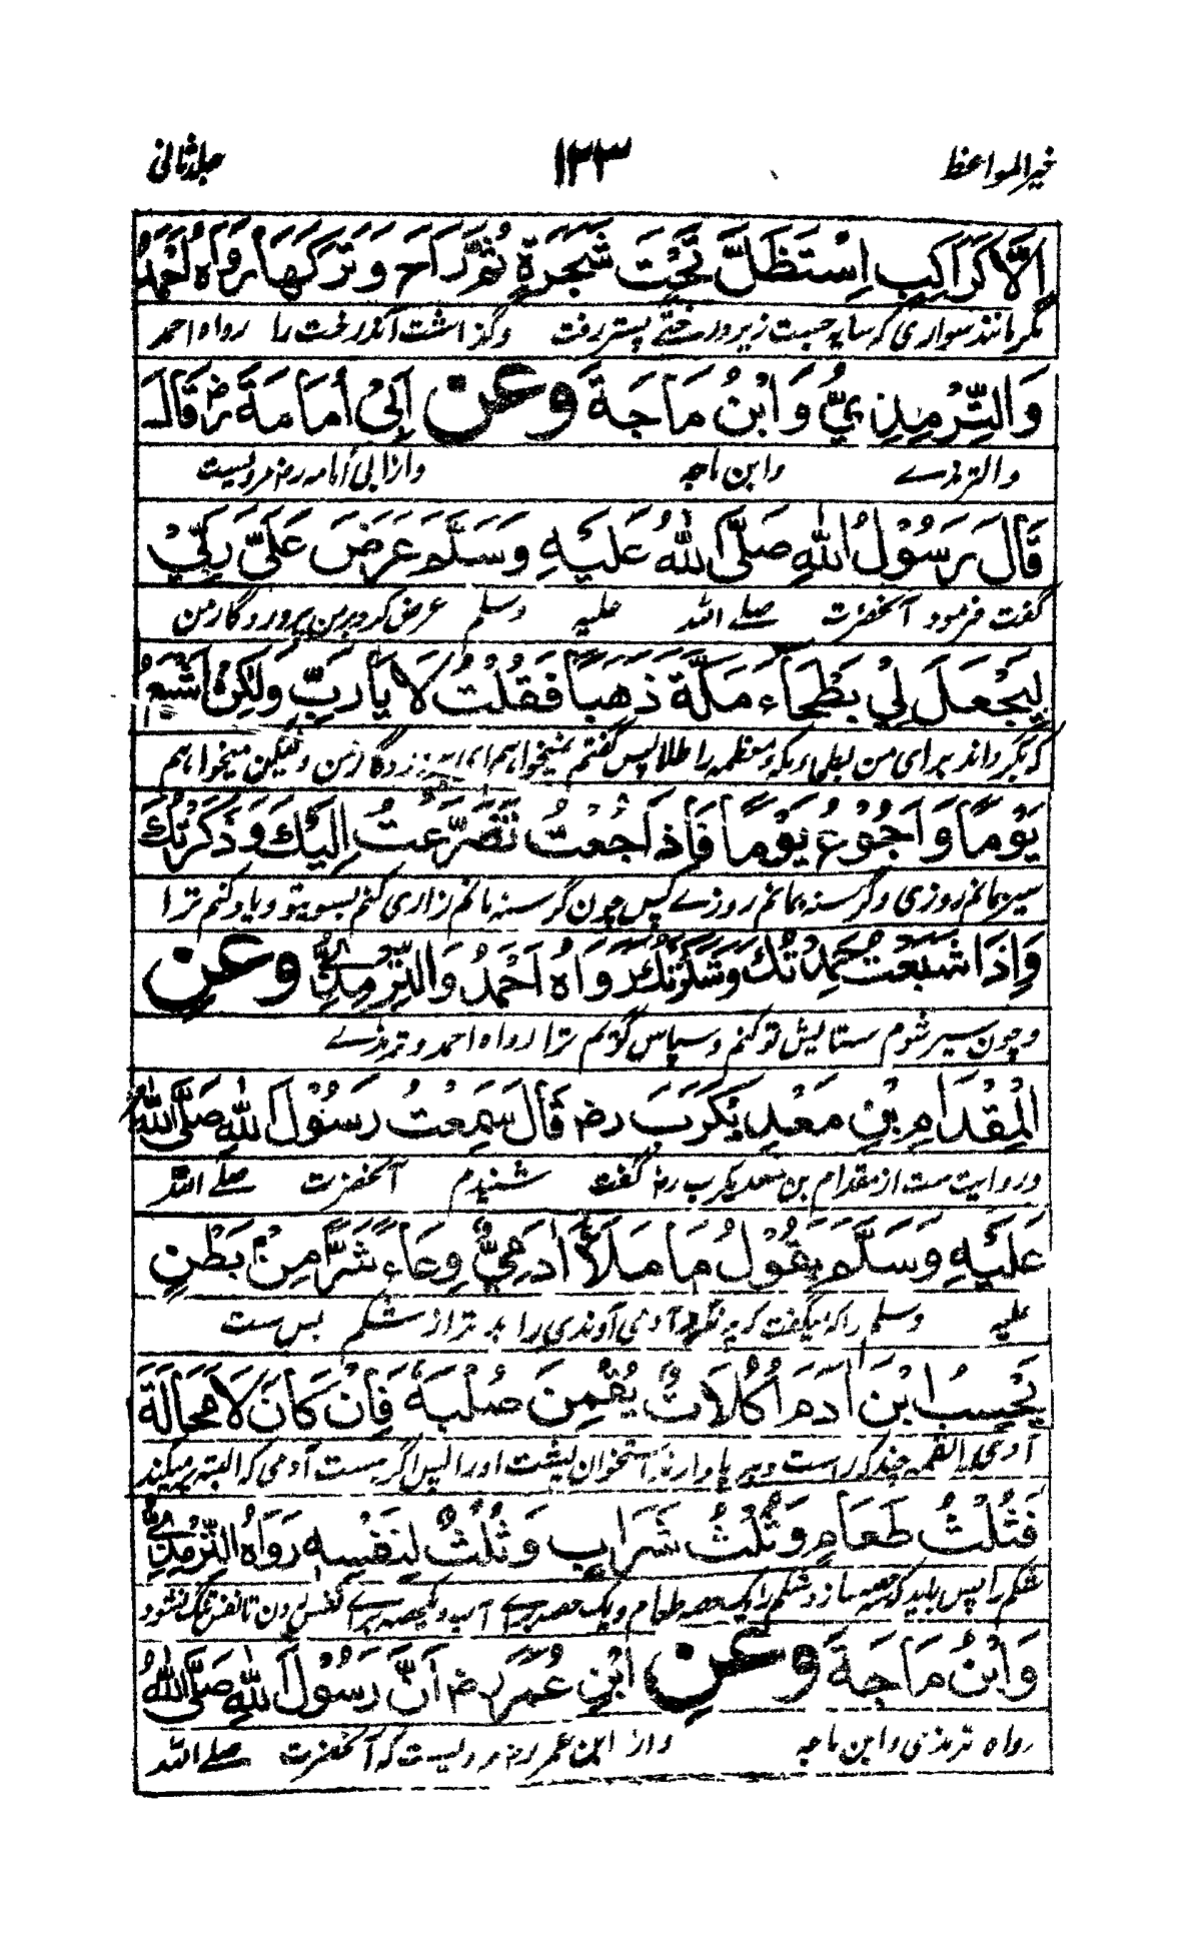 خير المواعظ ۱۳۳ جلد ثانی
اِلَّا كَرَاكِبٍ اِسْتَظَلَّ تَحْتَ شَجَرَةٍ ثُمَّ رَاحَ وَتَرَكَهَا رَوَاهُ اَحْمَدُ
مگر مانند سواری که سایه جست زیر درختے پستر رفت وگذاشت آندرخت را رواه احمد
وَالتِّرْمِذِيُّ وَابْنُ مَاجَةَ وعن اَبِىْ اُمَامَةَ رض قَالَ
والترمذے وابن ماجه وازابی أمامه رض مرویست
قَالَ رَسُوْلُ اللهِ صَلَّى اللهُ عَلَيْهِ وَسَلَّمَ عَرَضَ عَلَيَّ رَبِّيْ
گفت فرمود آنحضرت صلے الله علیه وسلم عرض کرد برمن پروردگار من
لِيَجْعَلَ لِيْ بَطْحَاءَ مَكَّةَ ذَهَبًا فَقُلْتُ لَا يَا رَبِّ وَلٰكِنْ اَشْبَعُ
که بگرداند برای من بطحاء مکه معظمه را طلا پس گفتم نمیخواهم ای پروردگار من ولیکن میخواهم
يَوْمًا وَاَجُوْعُ يَوْمًا فَاِذَا جُعْتُ تَضَرَّعْتُ اِلَيْكَ وَذَكَرْتُكَ
سیر بمانم روزی وگرسنه بمانم روزے پس چون گرسنه مانم زاری کنم بسوی تو ویاد کنم ترا
وَاِذَا شَبِعْتُ حَمِدْتُكَ وَشَكَرْتُكَ رَوَاهُ اَحْمَدُ وَالتِّرْمِذِيُّ وعن
وچون سیر شوم ستایش تو کنم وسپاس گویم ترا رواه احمد وترمذے
الْمِقْدَامِ بْنِ مَعْدِيْكَرَبَ رض قَالَ سَمِعْتُ رَسُوْلَ اللهِ صَلَّى اللهُ
وروایت ست از مقدام بن معدیکرب رض گفت شنیدم آنحضرت صلے الله
عَلَيْهِ وَسَلَّمَ يَقُوْلُ مَا مَلَأَ اٰدَمِيٌّ وِعَاءً شَرًّا مِنْ بَطْنٍ
علیه وسلم را که میگفت که پر نکرد آدمی آوندی را بد تر از شکم بس ست
بِحَسْبِ ابْنِ اٰدَمَ اُكُلَاتٌ يُقِمْنَ صُلْبَهٗ فَاِنْ كَانَ لَا مَحَالَةَ
آدمی را لقمه چند که راست وبر پا دارند استخوان پشت اورا پس اگر هست آدمی که البته پر میکند
فَثُلُثٌ طَعَامٍ وَثُلُثٌ شَرَابٍ وَثُلُثٌ لِنَفْسِهٖ رَوَاهُ التِّرْمِذِيُّ
شکم را پس باید که سه حصه سازد شکم را یک حصه طعام ویک حصه براے آب ویک حصه براے نفس تا نفس تنگ نشود
وَابْنُ مَاجَةَ وعن ابْنِ عُمَرَ رض اَنَّ رَسُوْلَ اللهِ صَلَّى اللهُ
رواه ترمذی وابن ماجه واز ابن عمر رض مرویست که آنحضرت صلے الله